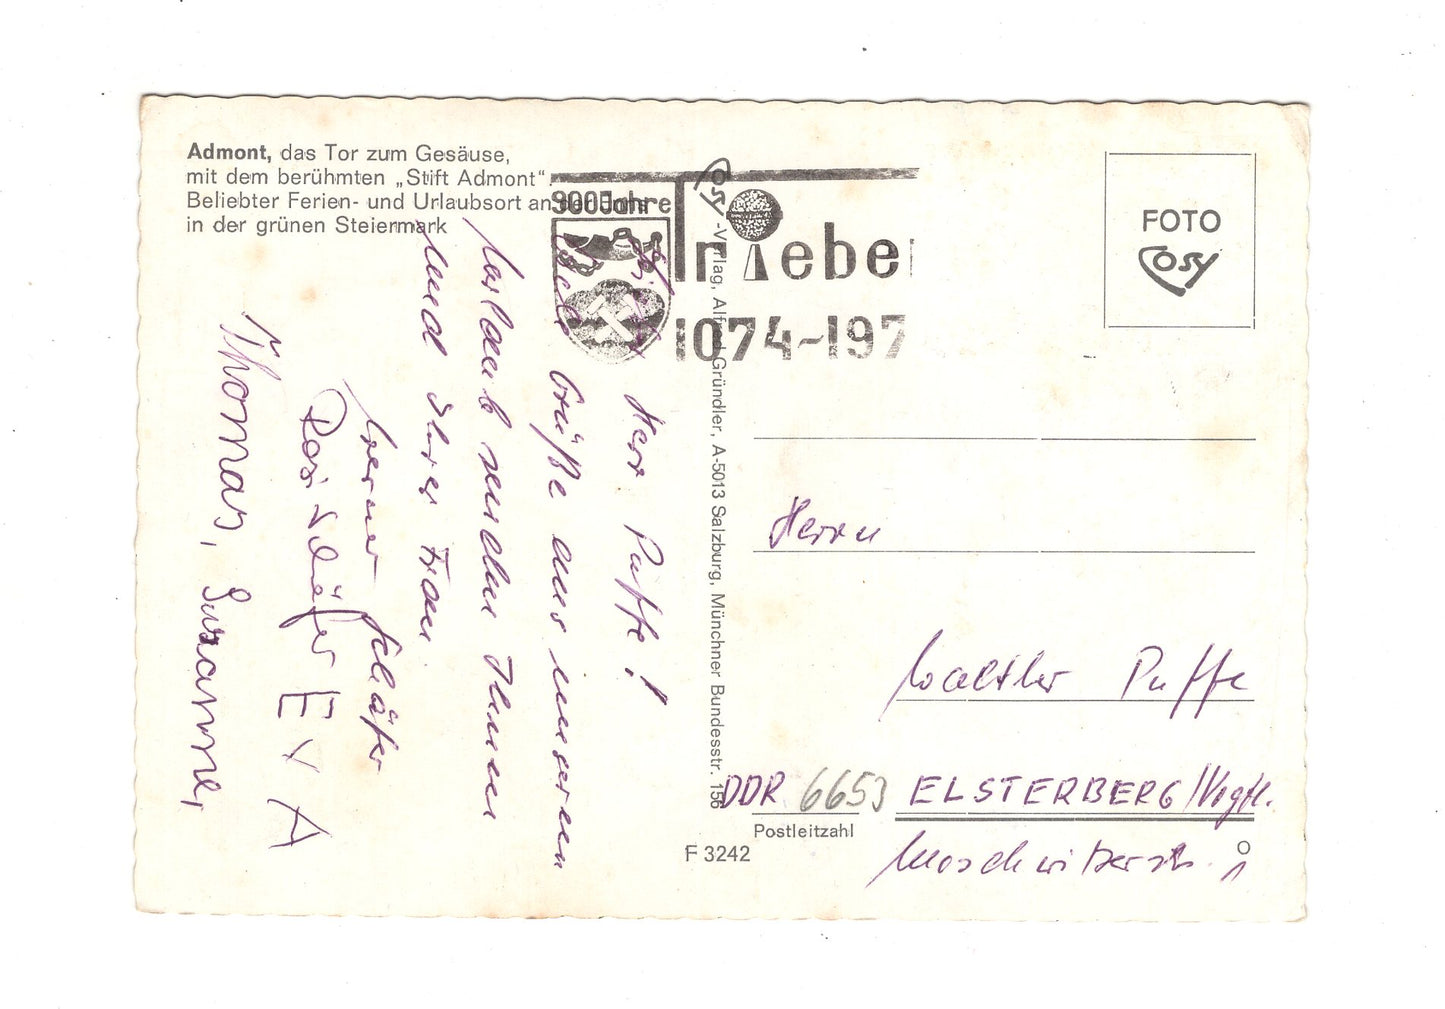 Admont, das Tor zum Gesäuse,
mit dem berühmten „Stift Admont".
Beliebter Ferien- und Urlaubsort an der Enns
in der grünen Steiermark
900 Jahre
Triebe
1074-197
Cosy-Verlag, Alfred Gründler, A-5013 Salzburg, Münchner Bundesstr. 156
FOTO
Cosy
Herr Puffe!
Viele Grüße aus unserem
Urlaub senden Ihnen
und Ihrer Frau
Werner Schäfer
Rosi Schäfer
E + A
Thomas, Susanne,
Herrn
Walther Puffe
DDR 6653 ELSTERBERG/Vogtl.
Postleitzahl
Moschwitzerstr. 1
F 3242